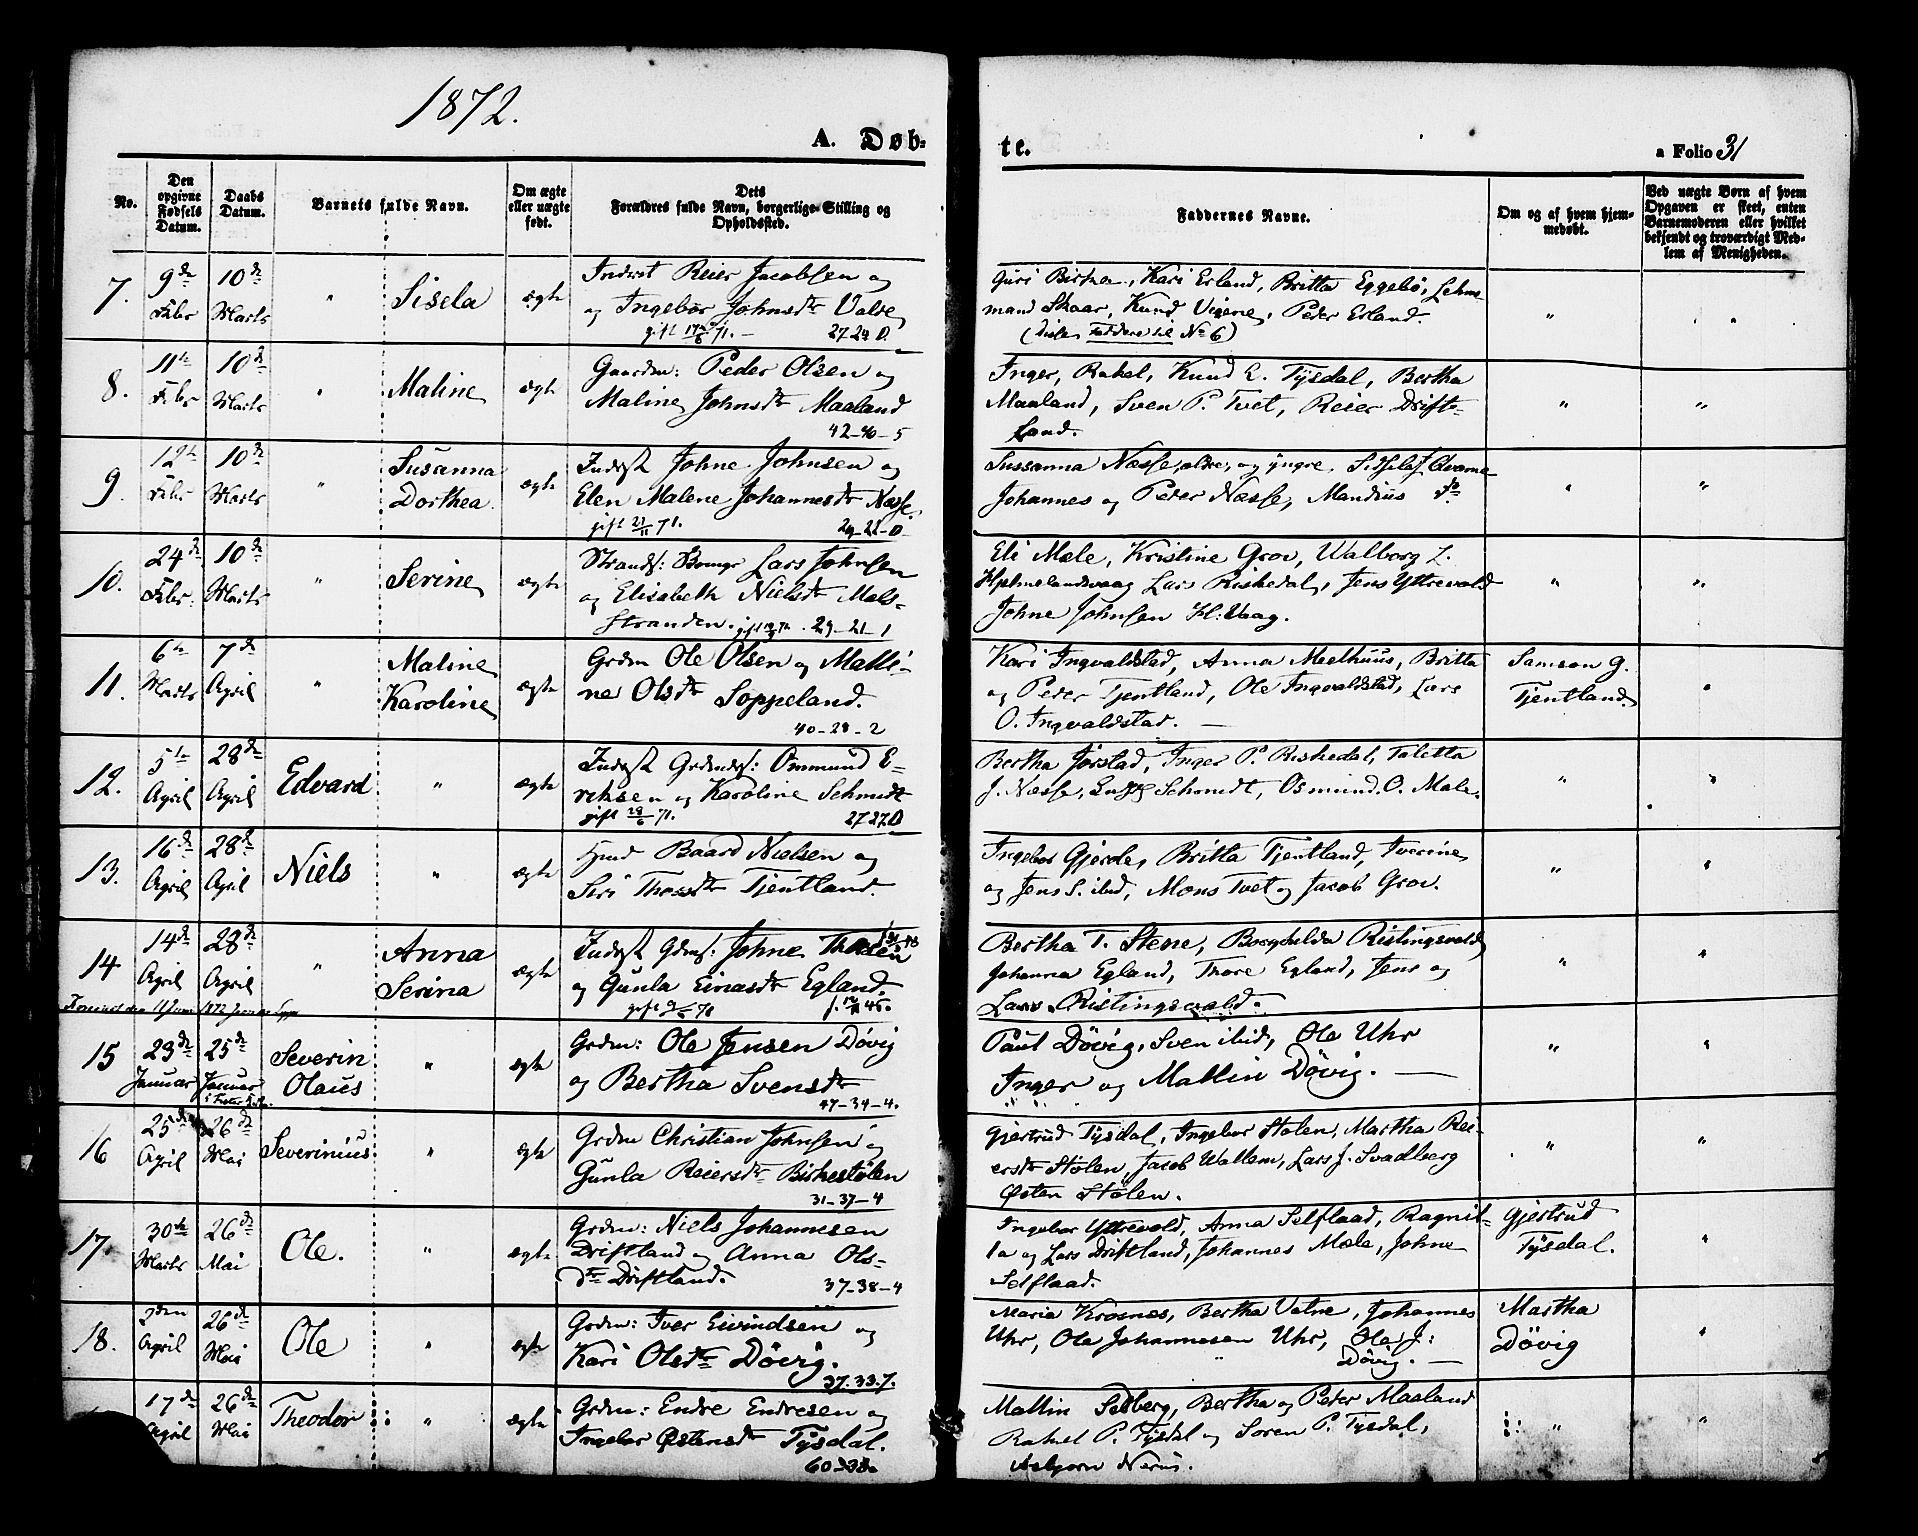 1872.
A. Døb-
te.
a Folio 31
No.
Den
opgivne
Fødsels
Datum.
Daabs
Datum.
Barnets fulde Navn.
Om ægte
eller uægte
født.
Dets
Forældres fulde Navn, borgerlige Stilling og
Opholdssted.
Faddernes Navne.
Om og af hvem hjem-
medøbt.
Ved uægte Børn af hvem
Opgaven er skeet, enten
Barnemoderen eller hvilket
bekjendt og troværdigt Med-
lem af Menigheden.
7.
9de
Febr
10de
Marts
"
Sisela
ægte
Inderst Reier Jacobsen og
og Ingebor Johnsdtr Valve
gift 71. — 27 24 0.
Guri Birkea, Kari Erland, Britta Eggebø,
mand Skaar, Knud Vigene, Peder Erland.
(disse Faddere til No 6)
"
"
8.
11te
Febr
10de
Marts
"
Maline
ægte
Gaardm: Peder Olsen og
Maline Johnsdtr Maaland
42-40-5
Inger, Rakel, Knud L. Tysdal, Bertha
Maaland, Sven P. Tvet, Reier Drift-
land.
"
"
9.
12te
Febr
10de
Marts
"
Susanna
Dorthea
ægte
Inderst Johne Johnsen og
Elen Malene Johannesdtr Nesse.
gift 21/11 71. 29-21-0
Sussanna Nesse, ældre, og yngre,
Johannes og Peder Nesse, Mandius do
"
"
10.
24de
Febr.
10de
Marts
"
Serine
ægte
Strands: Lars Johnsen
og Elisabeth Nielsdtr Mæle-
stranden. 29-21-1
Eli Mæle, Kristine Grov, Walborg L.
Hjelmelandsvaag Lars Riskedal, Jens Yttrevold
Johne Johnsen Hl: Vaag.
"
"
11.
6te
Marts
7de
April
"
Maline
Karoline
ægte
Grdm Ole Olsen og Malli-
ne Olsdtr Soppeland.
40-28-2
Kari Ingvaldstad, Anna Meelhuus, Britta
og Peder Tjentland, Ole Ingvaldstad, Lars
O. Ingvaldstad. —
Samson G.
Tjentland.
"
12.
5te
April
28de
April
Edvard
"
ægte
Inderst Grdmds: Ommund E-
riksen og Karoline Schmidt
gift 28/6 71. 27 27.0
Bertha Jørstad, Inger P. Riskedal, Taletta
J. Nesse, Schmidt, Osmund O. Mæle.
"
"
13.
16de
April
28de
April
Niels
"
ægte
Baard Nielsen og
Siri Thosdtr Tjentland.
Ingebor Gjerde, Britta Tjentland, Iverine
og Jens S. ibid, Mons Tvet og Jacob Grov.
"
"
14
14de
April
28de
April
"
Anna
Serina
ægte
Inderst Gdms: Johne Thorsen
og Gunla Einarsdtr Egland.
gift 71 45.
Bertha T. Stene, Borghilda Ristingsvold
Johanna Egland, Thore Egland, Jens og
Lars Ristingsvold.
"
"
15
23de
Januar
25de
Januar
Severin
Olaus
"
ægte
Grdm: Ole Jensen Døvig
og Bertha Svensdtr
47-34-4.
Paul Døvig, Sven ibid, Ole Uhr
Inger og Mallin Døvig. —
"
"
16
25de
April
26de
Mai
Severinius
"
ægte
Grdm Christian Johnsen og
Gunla Reiersdtr Birkestølen
31-37-4
Gjertrud Tysdal, Ingebor Stølen, Martha Rei-
ersdtr Stølen, Jacob Wallem, Lars J. Svadberg
Østen Stølen.
"
"
17.
30te
Marts
26de
Mai
Ole.
"
ægte
Grdm: Niels Johannesen
Driftland og Anna Ols-
dtr Driftland.
37-38-4
Ingebor Yttrevold, Anna Selflaad, Ragnil-
la og Lars Driftland, Johannes Mæle, Johne
Selflaad.
Gjertrud
Tysdal.
"
18.
2den
April
26de
Mai
Ole
"
ægte
Grdm: Iver Eivindsen og
Kari Olsdtr Døvig.
37.33.7.
Maria Krosnes, Bertha Vatne, Johannes
Uhr, Ole Johannesen Uhr, Ole J:
Døvig. —
Martha
Døvig
"
17de
April
26de
Mai
Theodor
"
ægte
Grdm: Endre Endresen og
Ingebor Østensdtr Tysdal.
60-38.
Mallin Selberg, Bertha og Peder Maaland
Rakel P. Tysdal og Soren P. Tysdal,
Asbjørn Nerus.
"
"